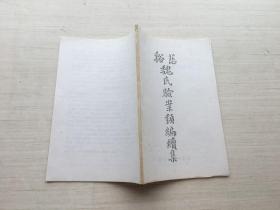 慈谿
魏氏驗案類編續集